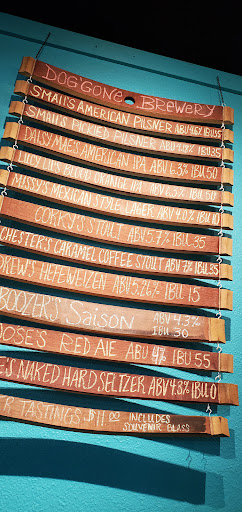 DOG'GONE BREWERY
SMALL'S AMERICAN PILSNER ABV 4.6% IBU 55
SMALL'S PICKLED PILSNER ABV 4.8% IBU 35
DAISY MAE'S AMERICAN IPA ABV 6.3% IBU 60
BLOOD ORANGE IPA ABV IBU 50
MISSY'S MEXICAN STYLE LAGER ABV 4.0% IBU 10
CORKY'S STOUT ABV 5.7% IBU 35
CHESTER'S CARAMEL COFFEE STOUT ABV 7% IBU 35
HEFEWEIZEN ABV 5.26% IBU 15
BOOZER'S SAISON ABV 4.3%
IBU 30
RED ALE ABV 4% IBU 55
NAKED HARD SELTZER ABV 4.8% IBU 0
TASTINGS $11 00 INCLUDES
SOUVENIR GLASS